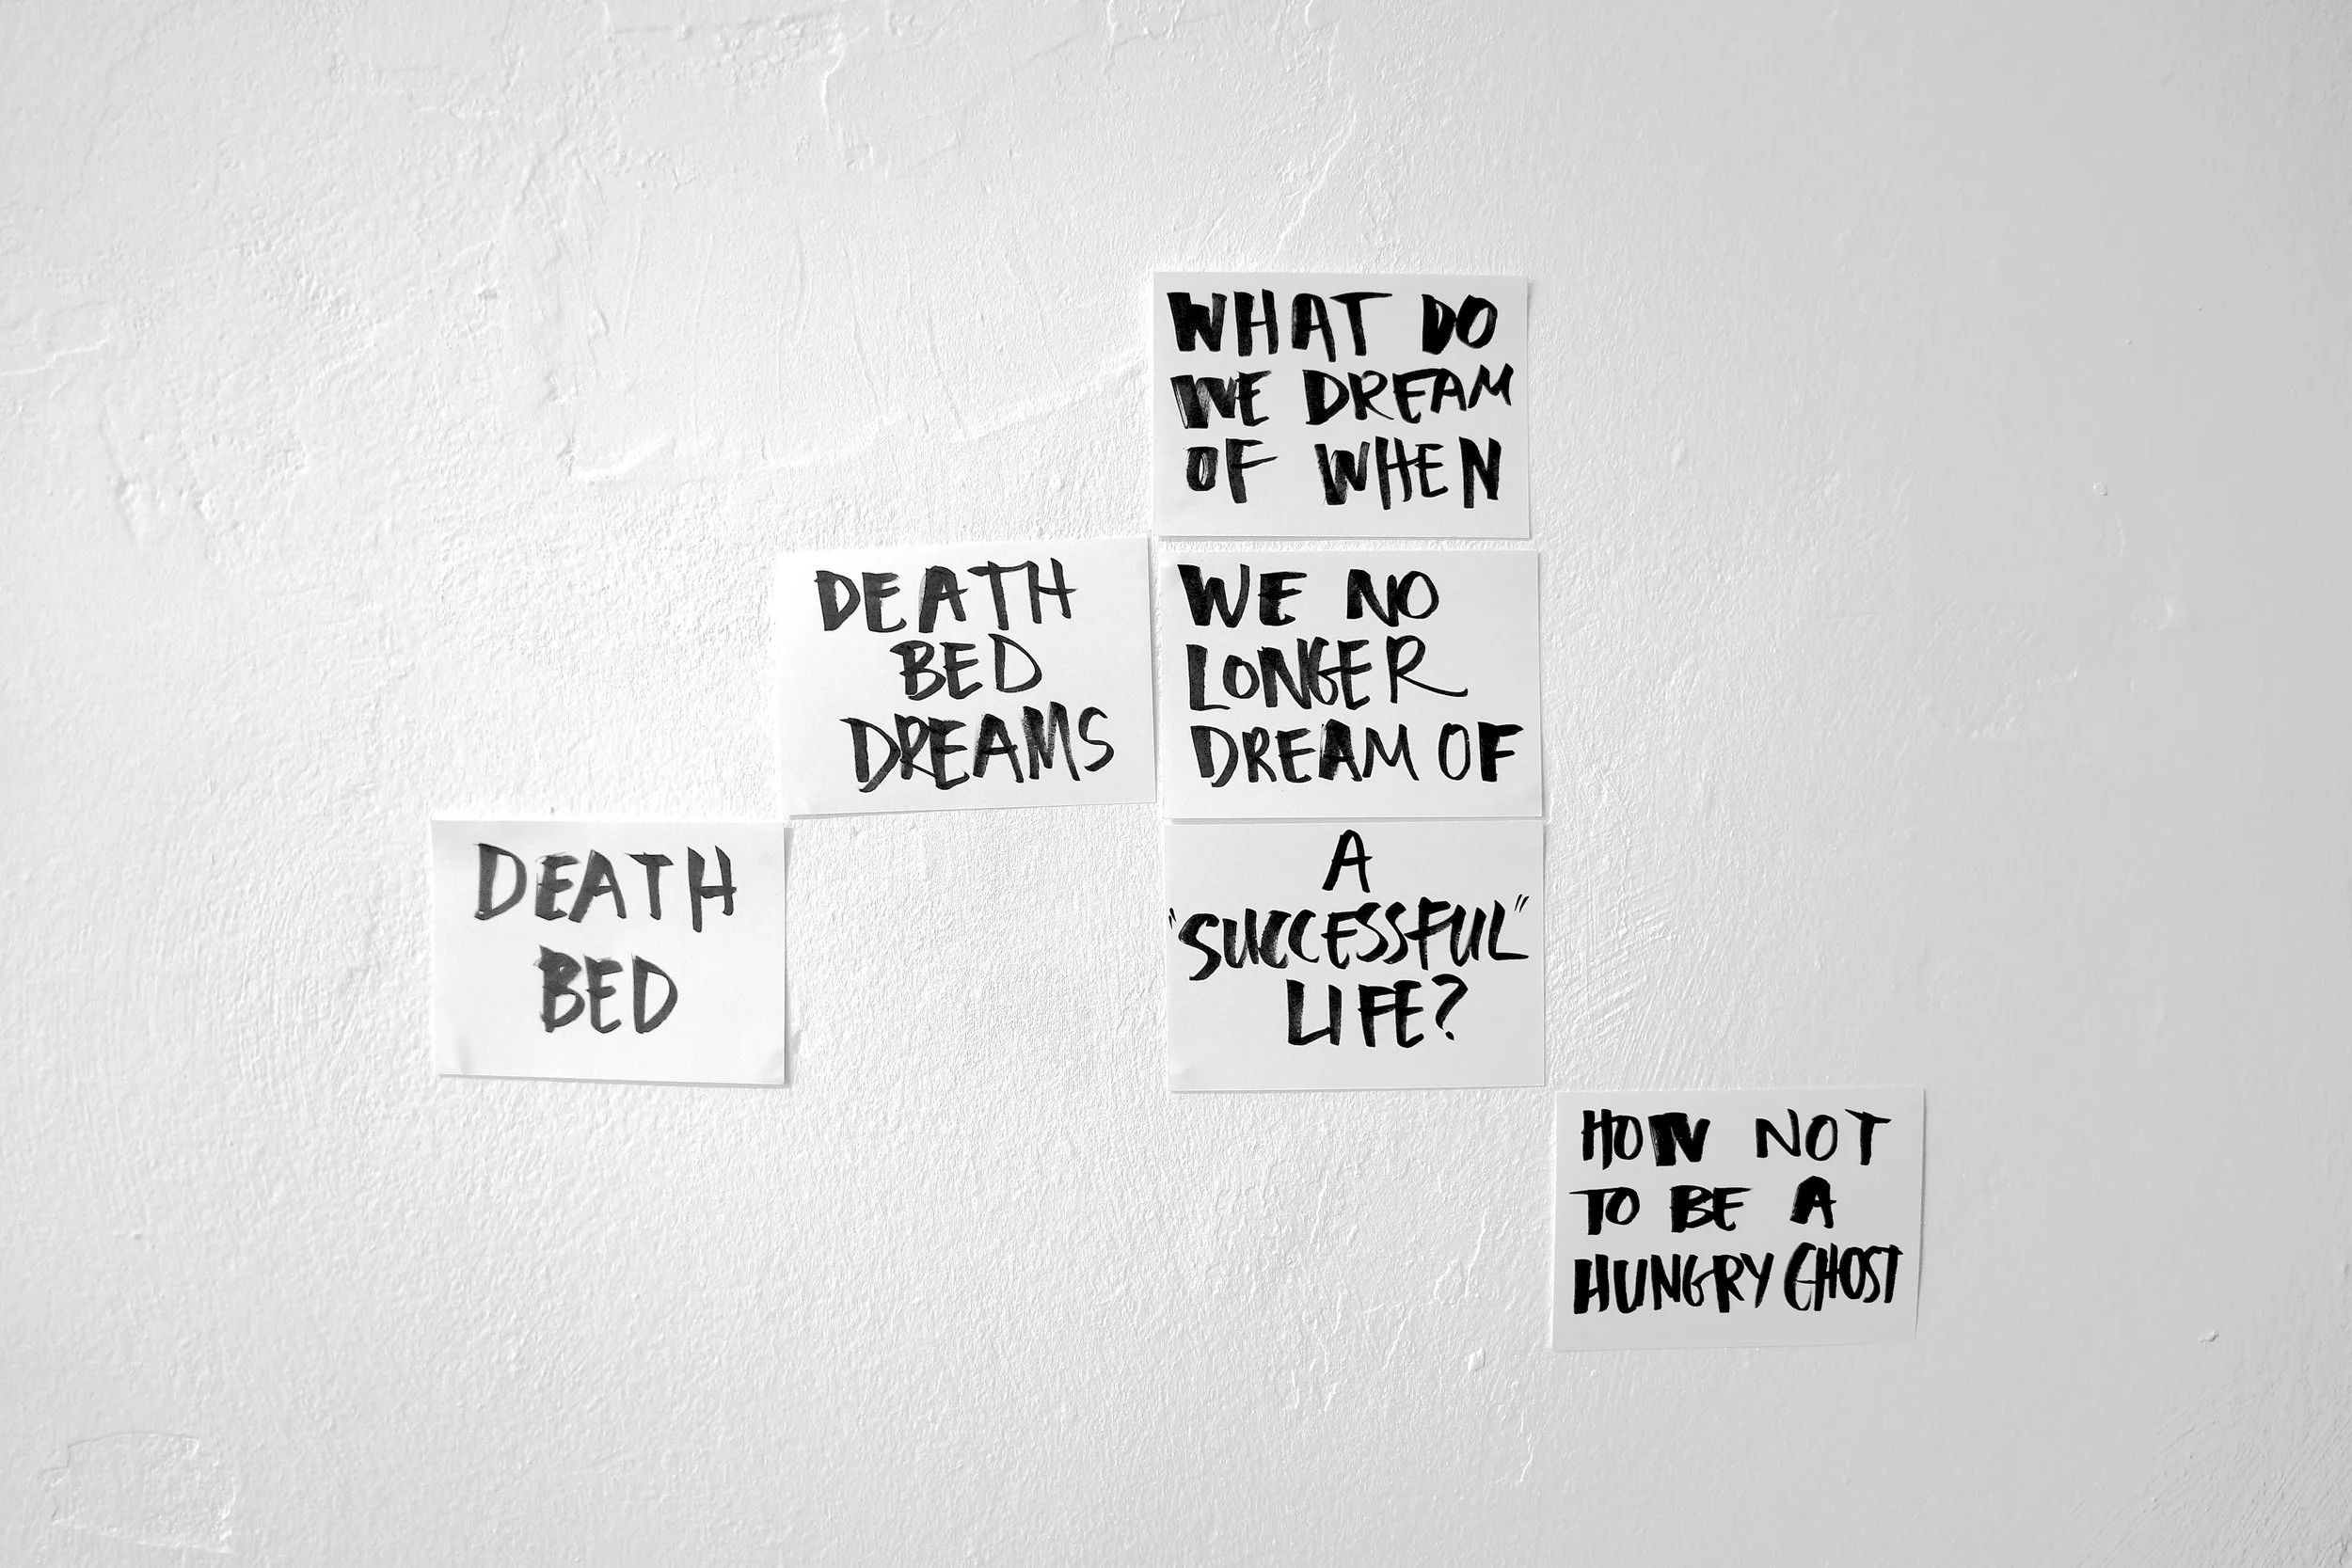 DEATH
BED
DEATH
BED
DREAMS
WHAT DO
WE DREAM
OF WHEN
WE NO
LONGER
DREAM OF
A
"SUCCESSFUL"
LIFE?
HOW NOT
TO BE A
HUNGRY GHOST